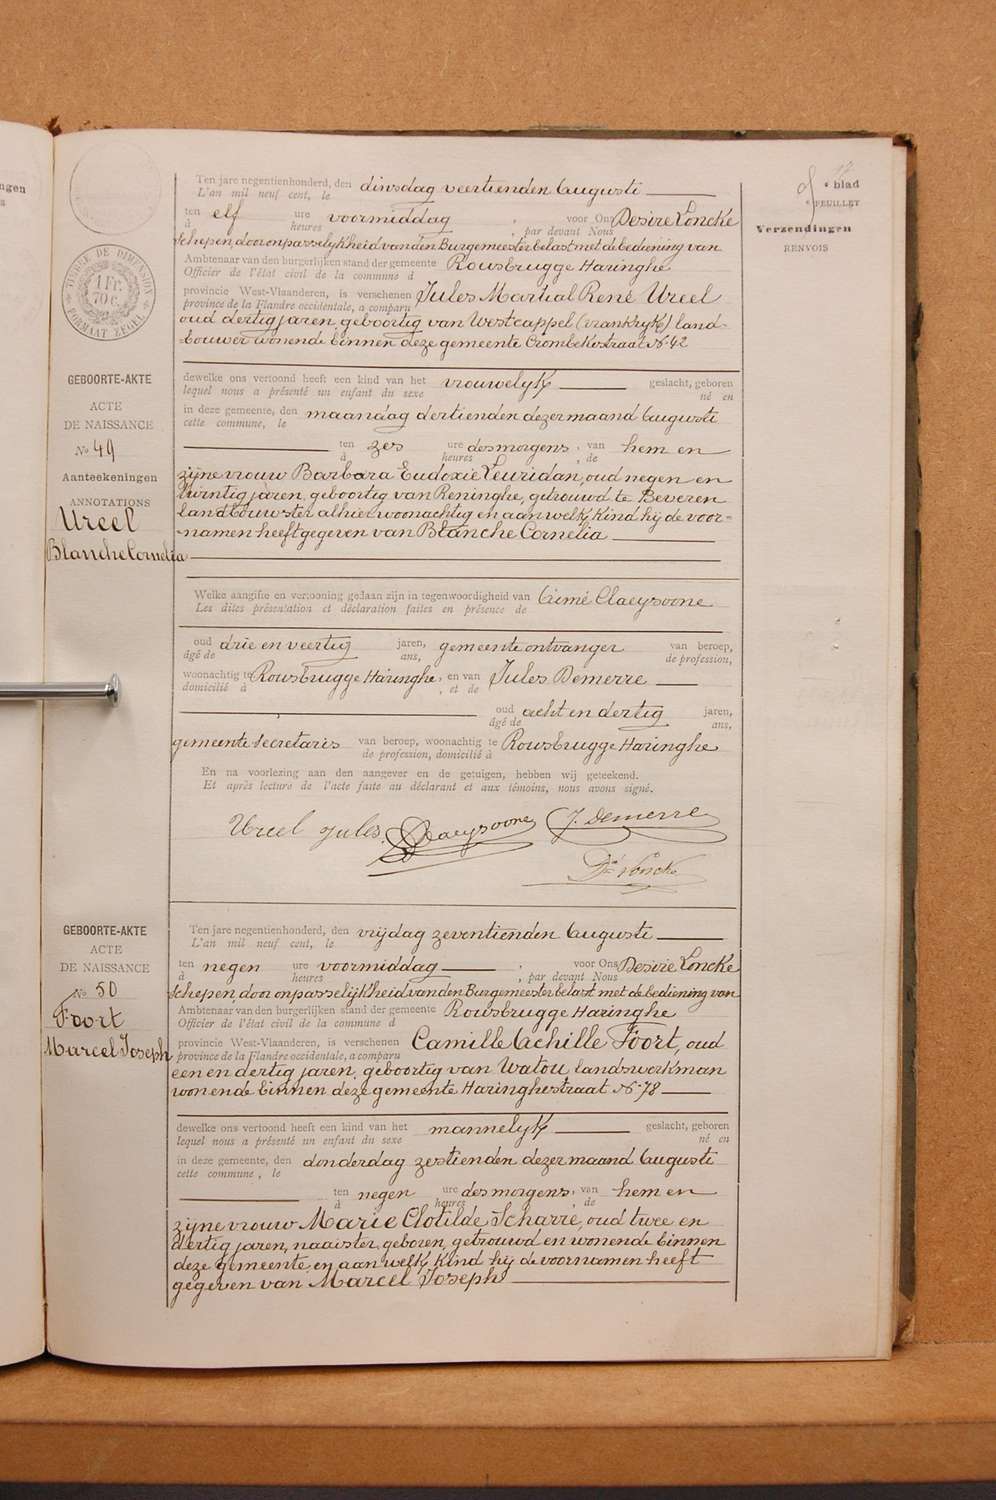 ngen
blad
FEUILLET
Verzendingen
RENVOIS
TIMBRE DE DIMENSION
1 Fr.
70 c.
FORMAAT ZEGEL
GEBOORTE-AKTE
ACTE
DE NAISSANCE
No 49
Aanteekeningen
ANNOTATIONS
Ureel
Blanche Cornelia
Ten jare negentienhonderd, den dinsdag veertienden Augusti
L'an mil neuf cent, le
ten elf ure voormiddag, voor Ons Desiré Loncke
à heures, par devant Nous
Schepen, door onpasselijkheid van den Burgemeester belast met de bediening van
Ambtenaar van den burgerlijken stand der gemeente Rousbrugge Haringhe
Officier de l'état civil de la commune d
provincie West-Vlaanderen, is verschenen Jules Martial René Ureel
province de la Flandre occidentale, a comparu
oud dertig jaren geboortig van Westcappel (vrankryk) land-
bouwer wonende binnen deze gemeente Crombekestraat No 42
dewelke ons vertoond heeft een kind van het vrouwelyk geslacht, geboren
lequel nous a présenté un enfant du sexe né en
in deze gemeente, den maandag dertienden dezer maand Augusti
cette commune, le
ten zes ure des morgens, van hem en
à heures, de
zijne vrouw Barbara Eudoxie Leuridan, oud negen en
twintig jaren, geboortig van Reninghe, getrouwd te Beveren
landbouwster alhier woonachtig en aan welk kind hij de voor-
-namen heeft gegeven van Blanche Cornelia
Welke aangifte en vertooning gedaan zijn in tegenwoordigheid van Aimé Claeysoone
Les dites présentation et déclaration faites en présence de
oud drie en veertig jaren, gemeente ontvanger van beroep,
âgé de ans, de profession,
woonachtig te Rousbrugge Haringhe, en van Jules Demerre
domicilié à , et de
oud acht en dertig jaren,
âgé de ans,
gemeente secretaris van beroep, woonachtig te Rousbrugge Haringhe
de profession, domicilié à
En na voorlezing aan den aangever en de getuigen, hebben wij geteekend.
Et après lecture de l'acte faite au déclarant et aux témoins, nous avons signé.
Ureel Jules. Claeysoone J. Demerre
Dé Loncke
GEBOORTE-AKTE
ACTE
DE NAISSANCE
No 50
Foort
Marcel Joseph
Ten jare negentienhonderd, den vrijdag zeventienden Augusti
L'an mil neuf cent, le
ten negen ure voormiddag, voor Ons Desiré Loncke
à heures, par devant Nous
Schepen, door onpasselijkheid van den Burgemeester belast met de bediening van
Ambtenaar van den burgerlijken stand der gemeente Rousbrugge Haringhe
Officier de l'état civil de la commune d
provincie West-Vlaanderen, is verschenen Camille Achille Foort, oud
province de la Flandre occidentale, a comparu
een en dertig jaren, geboortig van Watou, landswerkman
wonende binnen deze gemeente Haringhestraat No 78
dewelke ons vertoond heeft een kind van het mannelyk geslacht, geboren
lequel nous a présenté un enfant du sexe né en
in deze gemeente, den donderdag zestienden dezer maand Augusti
cette commune, le
ten negen ure des morgens, van hem en
à heures, de
zijne vrouw Marie Clotilde Scharre, oud twee en
dertig jaren, naaister, geboren, getrouwd en wonende binnen
deze gemeente, en aan welk kind hij de voornamen heeft
gegeven van Marcel Joseph